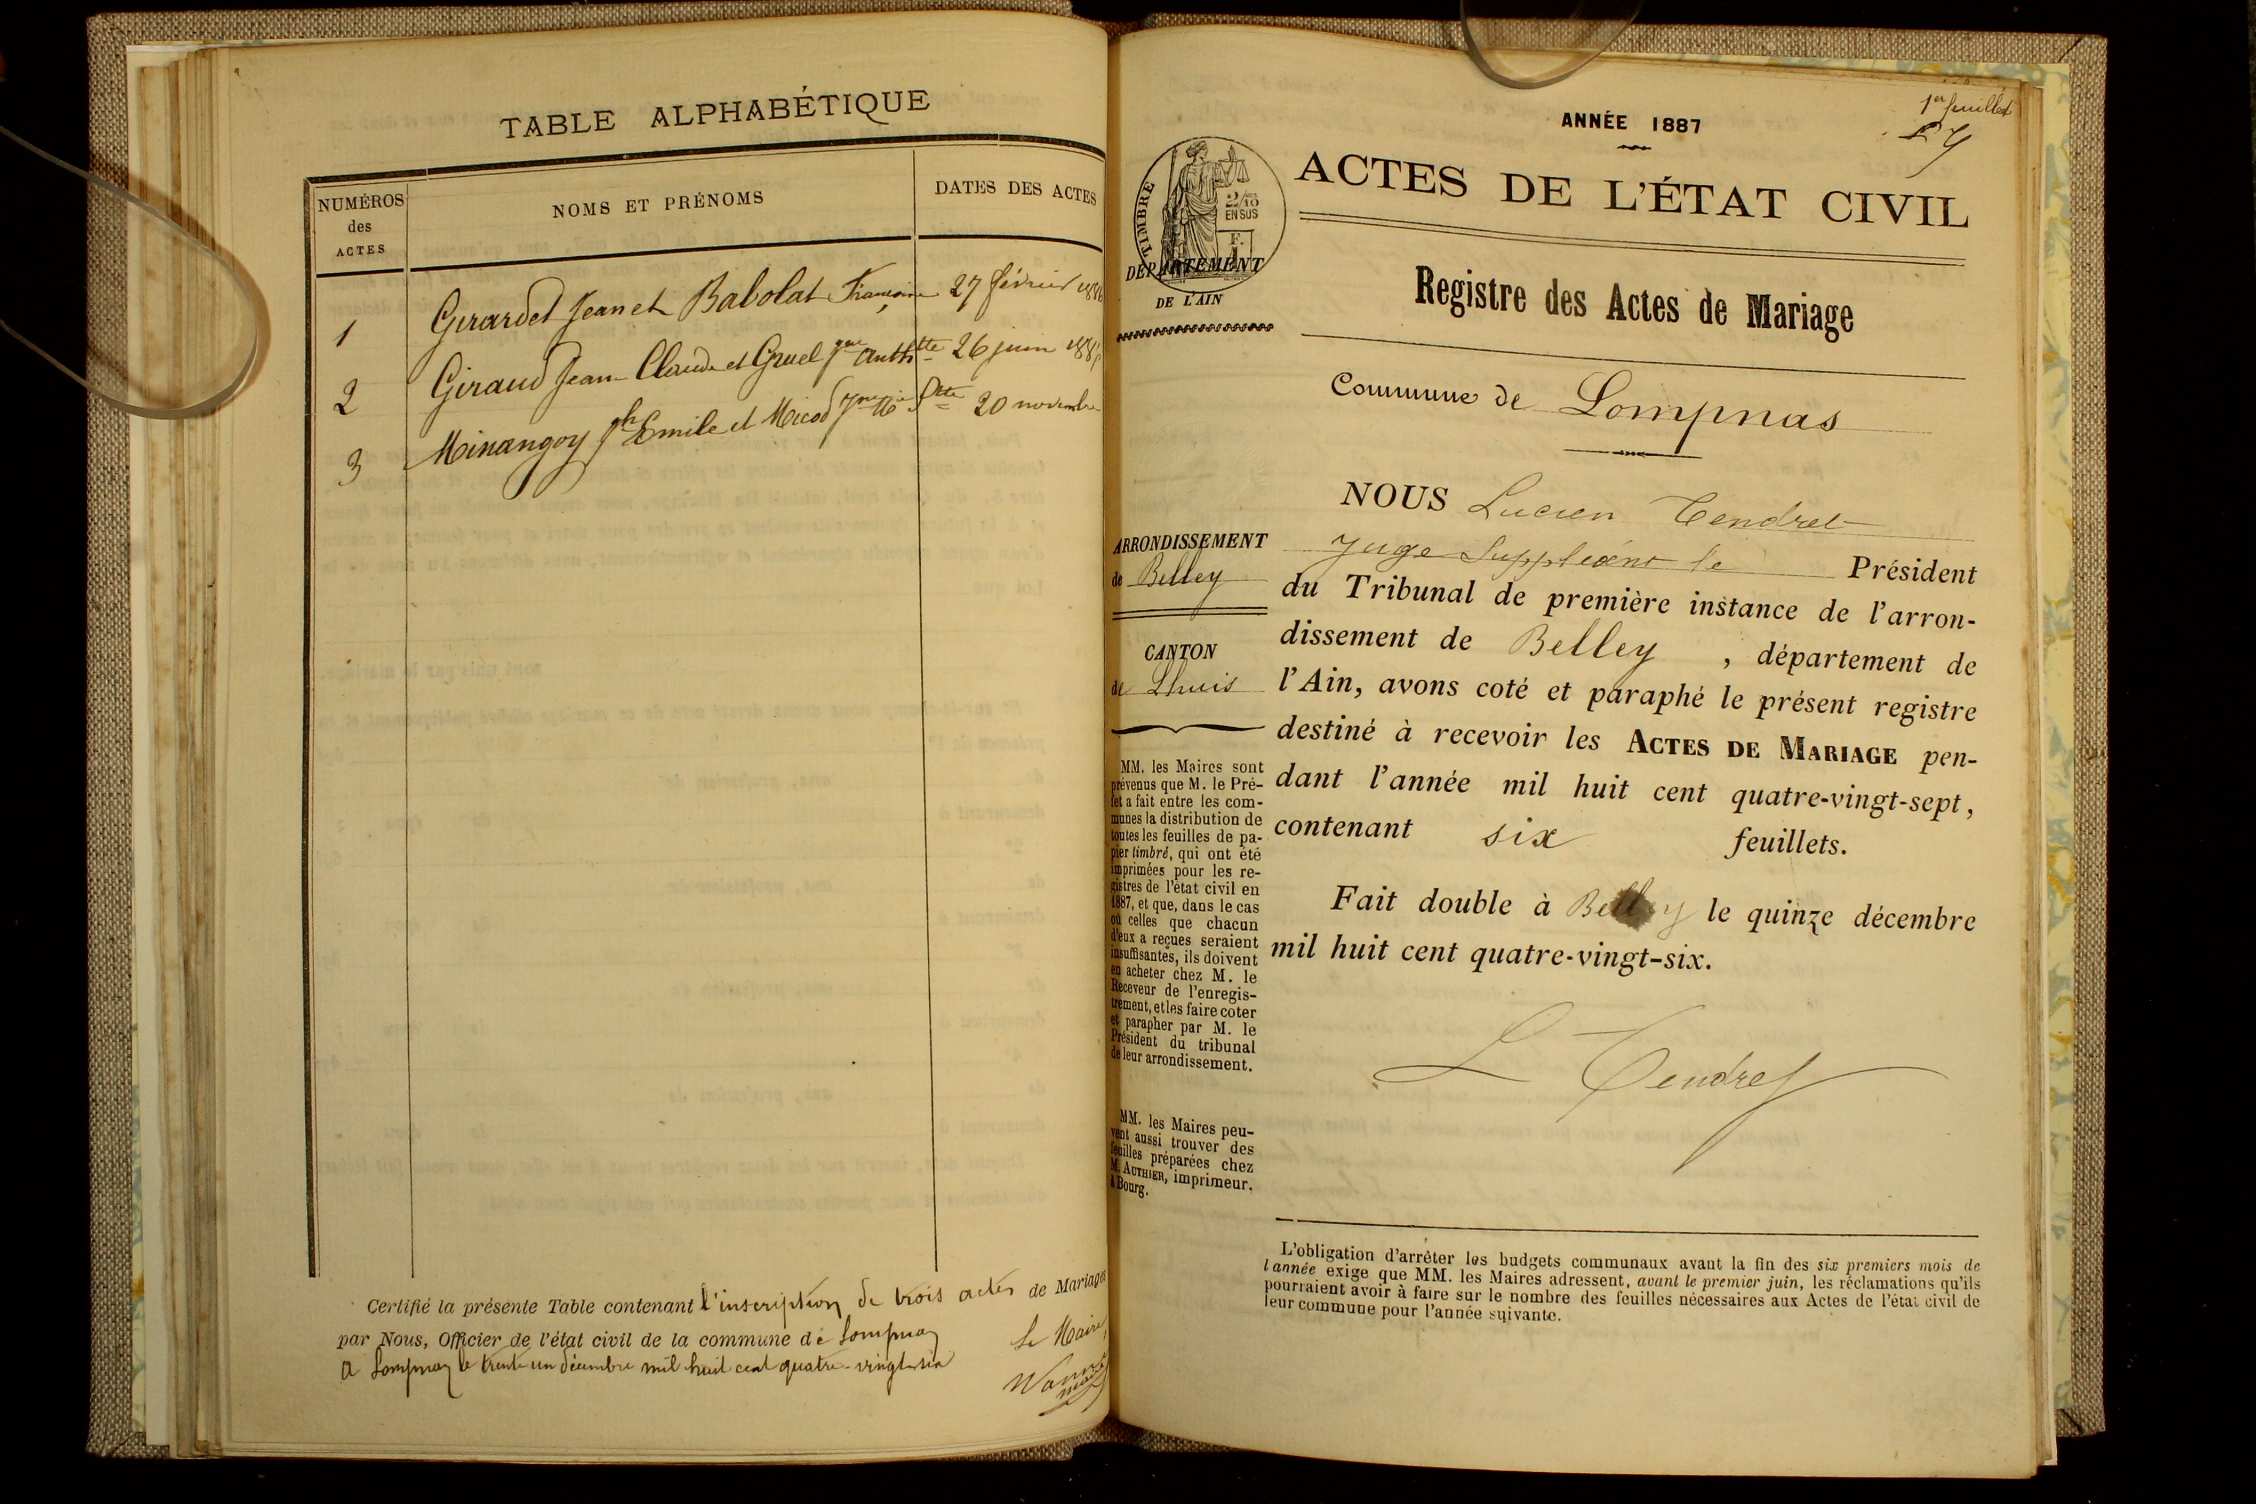 TABLE ALPHABÉTIQUE
NUMÉROS
des
ACTES
NOMS ET PRÉNOMS
DATES DES ACTES
1 Girardet Jean et Babolat Françoise 27 février 1886
2 Giraud Jean Claude et Gruel 26 juin
3 Minangoy Jph Emile et Micod 20 novembre
Certifié la présente Table contenant l'inscription de trois actes de Mariages
par Nous, Officier de l'état civil de la commune de Lompnaz
A Lompnaz le trente un décembre mil huit cent quatre-vingt-six
Le Maire
1er feuillet
ANNÉE 1887
ACTES DE L'ÉTAT CIVIL
TIMBRE
2/10
EN SUS
F.
1
DÉPARTEMENT
DE L'AIN
Registre des Actes de Mariage
Commune de Lompnas
ARRONDISSEMENT
de Belley
CANTON
de Lhuis
MM. les Maires sont
prévenus que M. le Pré-
fet a fait entre les com-
munes la distribution de
toutes les feuilles de pa-
pier timbré, qui ont été
imprimées pour les re-
gistres de l'état civil en
1887, et que, dans le cas
où celles que chacun
d'eux a reçues seraient
insuffisantes, ils doivent
en acheter chez M. le
Receveur de l'enregis-
trement, et les faire coter
et parapher par M. le
Président du tribunal
de leur arrondissement.
MM. les Maires peu-
vent aussi trouver des
feuilles préparées chez
M. AUTHIER, imprimeur.
à Bourg.
NOUS Lucien Tendret
Juge Suppléant le Président
du Tribunal de première instance de l'arron-
dissement de Belley , département de
l'Ain, avons coté et paraphé le présent registre
destiné à recevoir les ACTES DE MARIAGE pen-
dant l'année mil huit cent quatre-vingt-sept,
contenant six feuillets.
Fait double à Belley le quinze décembre
mil huit cent quatre-vingt-six.
L Tendret
L'obligation d'arrêter les budgets communaux avant la fin des six premiers mois de
l'année exige que MM. les Maires adressent, avant le premier juin, les réclamations qu'ils
pourraient avoir à faire sur le nombre des feuilles nécessaires aux Actes de l'état civil de
leur commune pour l'année suivante.